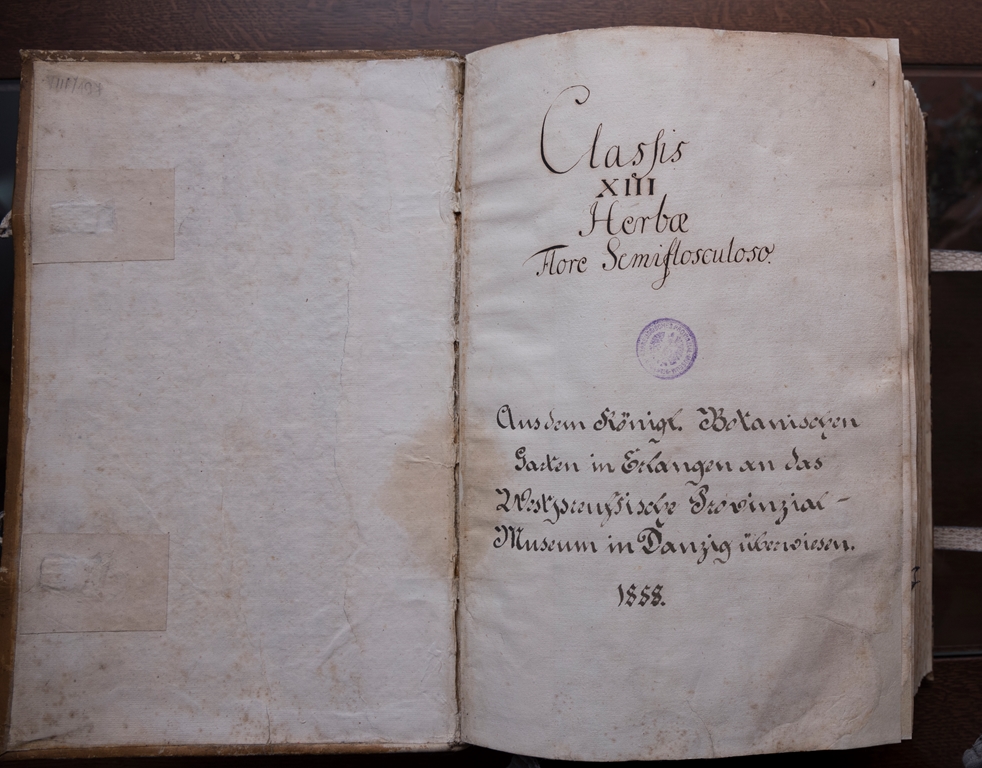 Classis
XIII
Herbæ
Flore Semiflosculoso.
Aus dem Königl. Botanischen
Garten in Erlangen an das
Westpreussische Provinzial-
Museum in Danzig überwiesen.
1888.